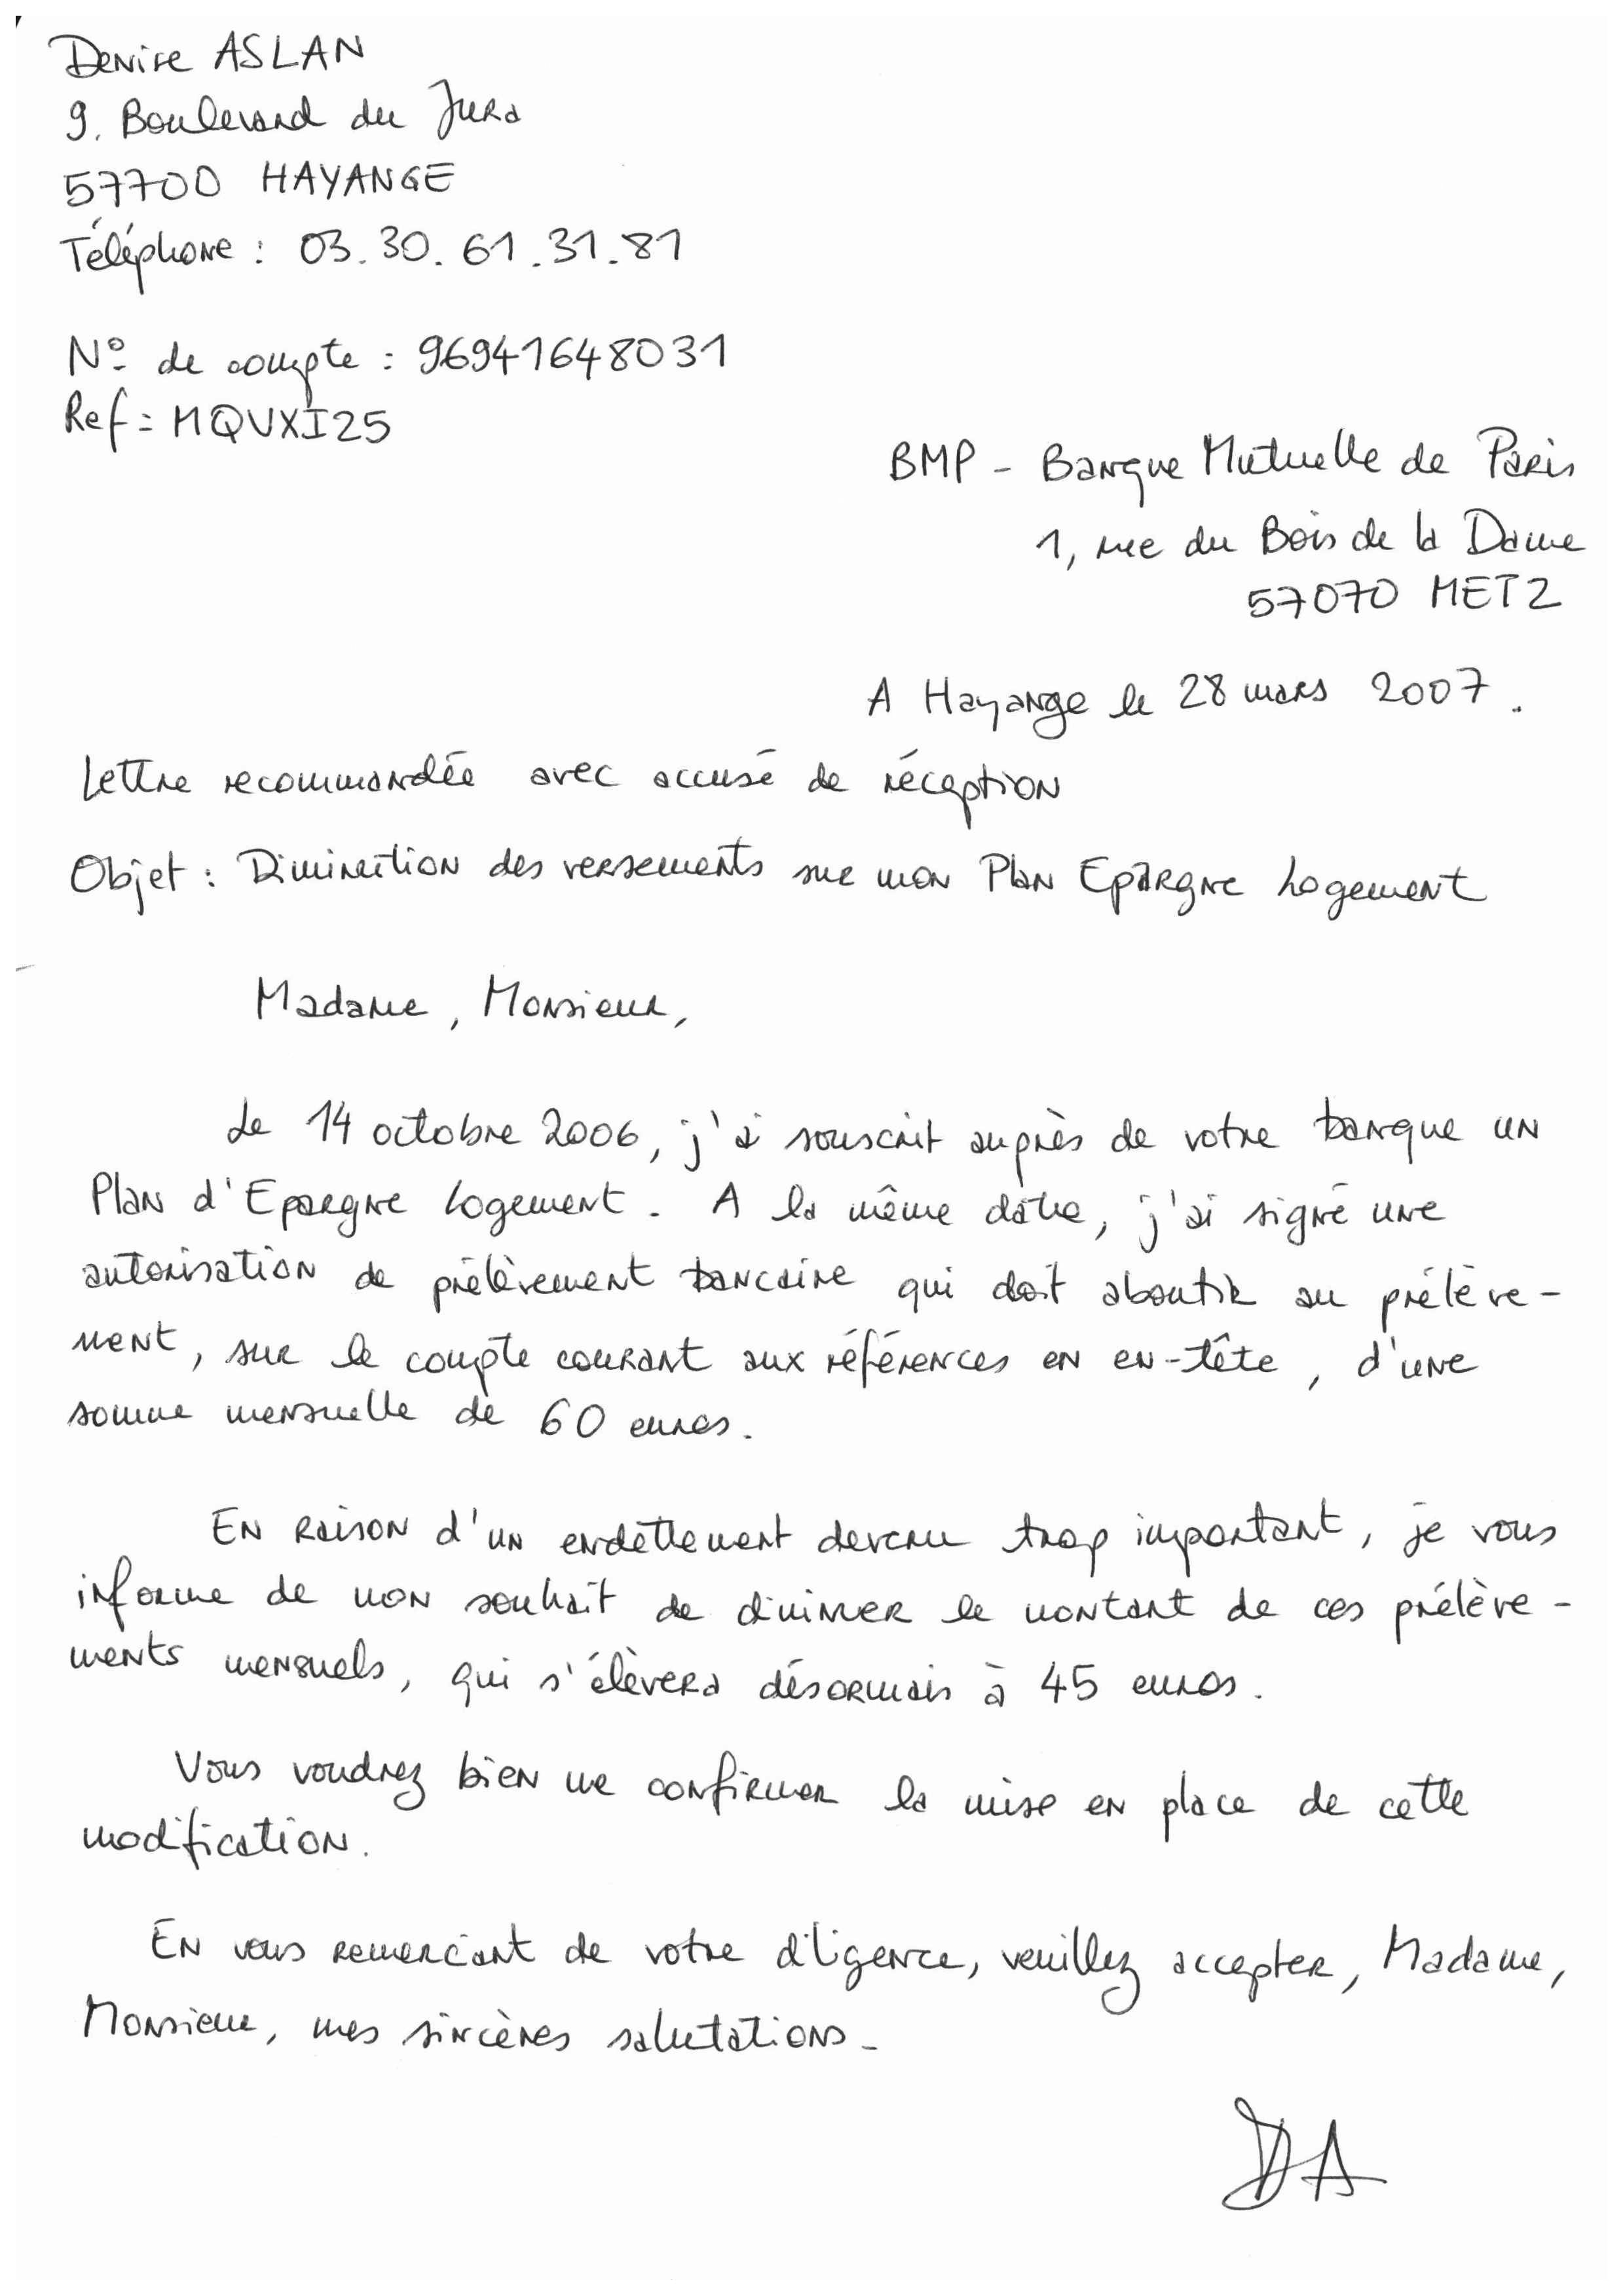 Denise ASLAN
9, Boulevard du Jura
57700 HAYANGE
Téléphone : 03.30.61.31.81
N° de compte : 96941648031
Ref : MQVXI25
BMP - Banque Mutuelle de Paris
1, rue du Bois de la Dame
57070 METZ
A Hayange le 28 mars 2007.
Lettre recommandée avec accusé de réception
Objet : Diminution des versements sur mon Plan Epargne Logement
Madame, Monsieur,
Le 14 octobre 2006, j'ai souscrit auprès de votre banque un
Plan d'Epargne Logement. A la même date, j'ai signé une
autorisation de prélèvement bancaire qui doit aboutir au prélève-
ment, sur le compte courant aux références en en-tête, d'une
somme mensuelle de 60 euros.
En raison d'un endettement devenu trop important, je vous
informe de mon souhait de diminer le montant de ces prélève-
ments mensuels, qui s'élèvera désormais à 45 euros.
Vous voudrez bien me confirmer la mise en place de cette
modification.
En vous remerciant de votre diligence, veuillez accepter, Madame,
Monsieur, mes sincères salutations.
DA